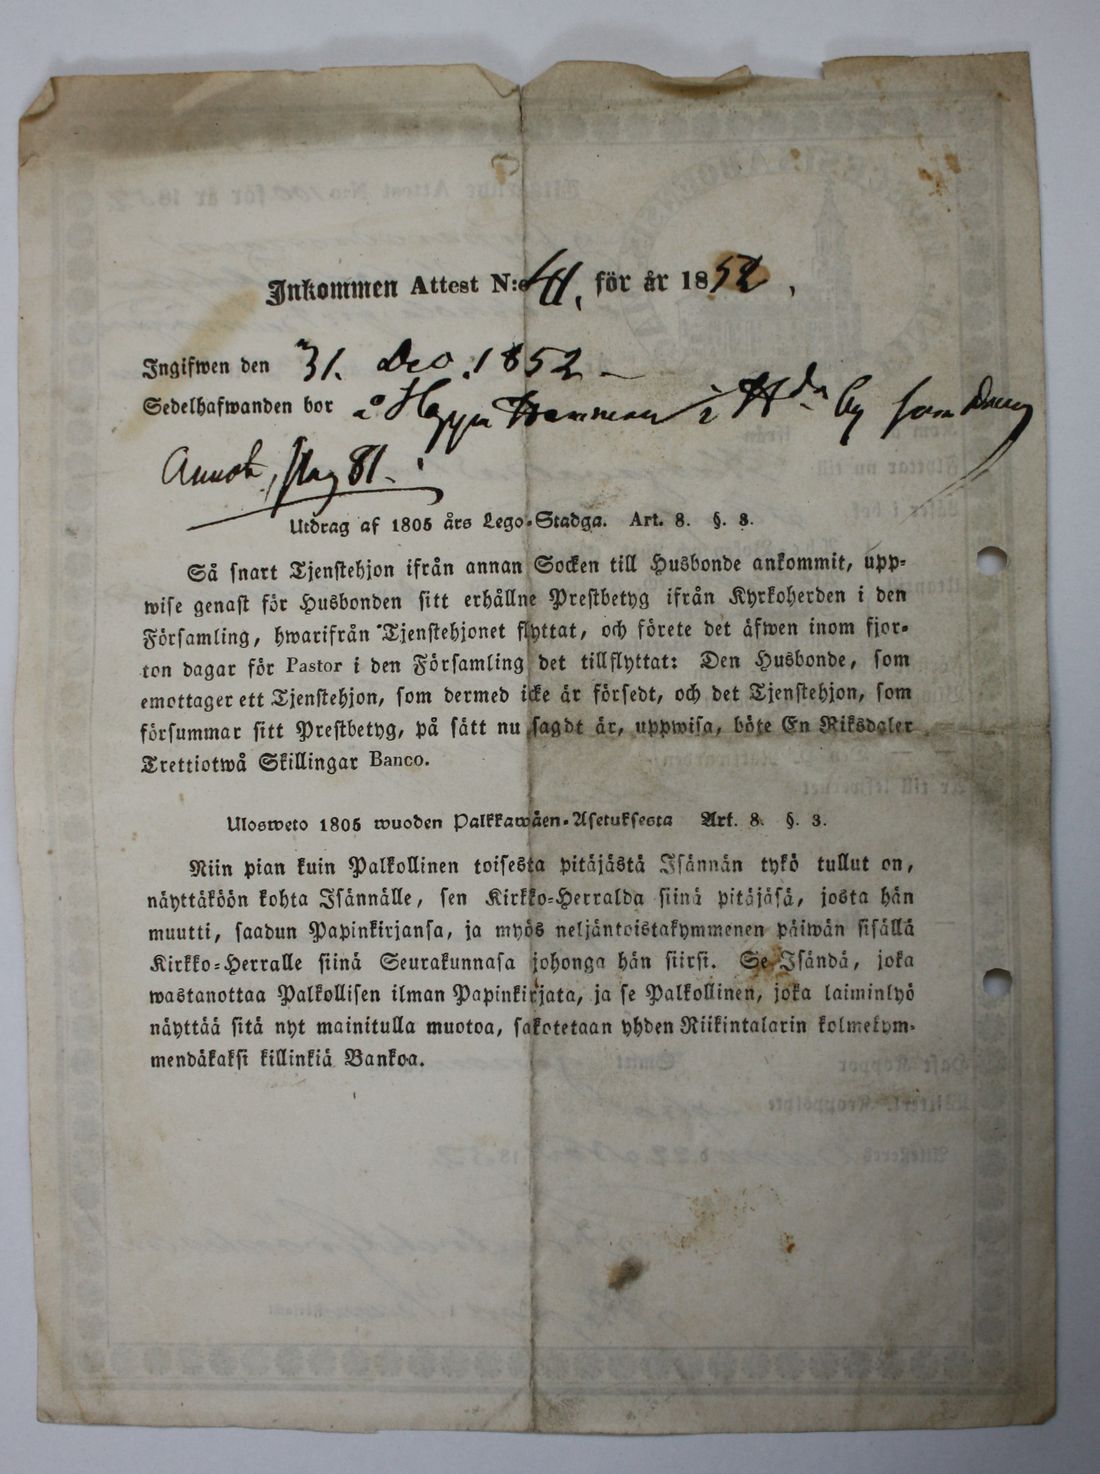 Inkommen Attest N:o 41, för år 1852,
Ingifwen den 31. Dec. 1852 –
Sedelhafwanden bor å i by som Dräng
Annot. pag 81.
Utdrag af 1805 års Lego-Stadga. Art. 8. §. 3.
Så snart Tjenstehjon ifrån annan Socken till Husbonde ankommit, upp-
wise genast för Husbonden sitt erhållne Prestbetyg ifrån Kyrkoherden i den
Församling, hwarifrån Tjenstehjonet flyttat, och förete det äfwen inom fjor-
ton dagar för Pastor i den Församling det tillflyttat: Den Husbonde, som
emottager ett Tjenstehjon, som dermed icke är försedt, och det Tjenstehjon, som
försummar sitt Prestbetyg, på sätt nu sagdt är, uppwisa, böte En Riksdaler
Trettiotwå Skillingar Banco.
Ulosweto 1805 wuoden Palkkawäen-Asetuksesta Art. 8. §. 3.
Niin pian kuin Palkollinen toisesta pitäjästä Isännän tykö tullut on,
näyttäköön kohta Isännälle, sen Kirkko-Herralda siinä pitäjäsä, josta hän
muutti, saadun Papinkirjansa, ja myös neljäntoistakymmenen päiwän sisällä
Kirkko-Herralle siinä Seurakunnasa johonga hän siirsi. Se Isändä, joka
wastanottaa Palkollisen ilman Papinkirjata, ja se Palkollinen, joka laiminlyö
näyttää sitä nyt mainitulla muotoa, sakotetaan yhden Riikintalarin kolmekym-
mendäkaksi killinkiä Bankoa.